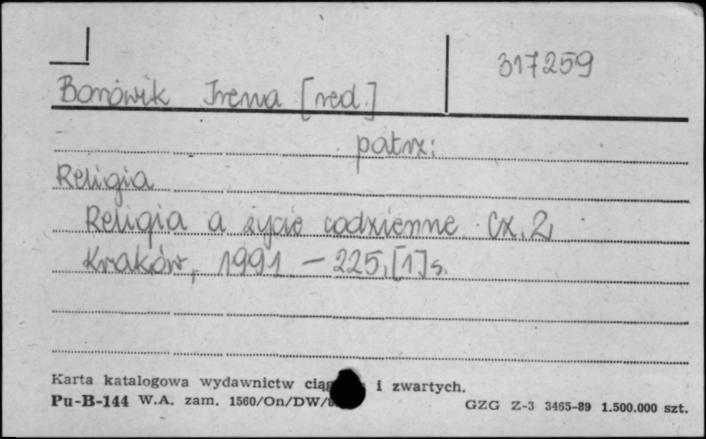 317259
Borowik Irena [red.]
patrz:
Religia
Religia a życie codzienne. Cz. 2,
Kraków, 1991. - 225, [1] s.
Karta katalogowa wydawnictw i zwartych.
Pu-B-144 W.A. zam. 1560/On/DW/
GZG Z-3 3465-89 1.500.000 szt.